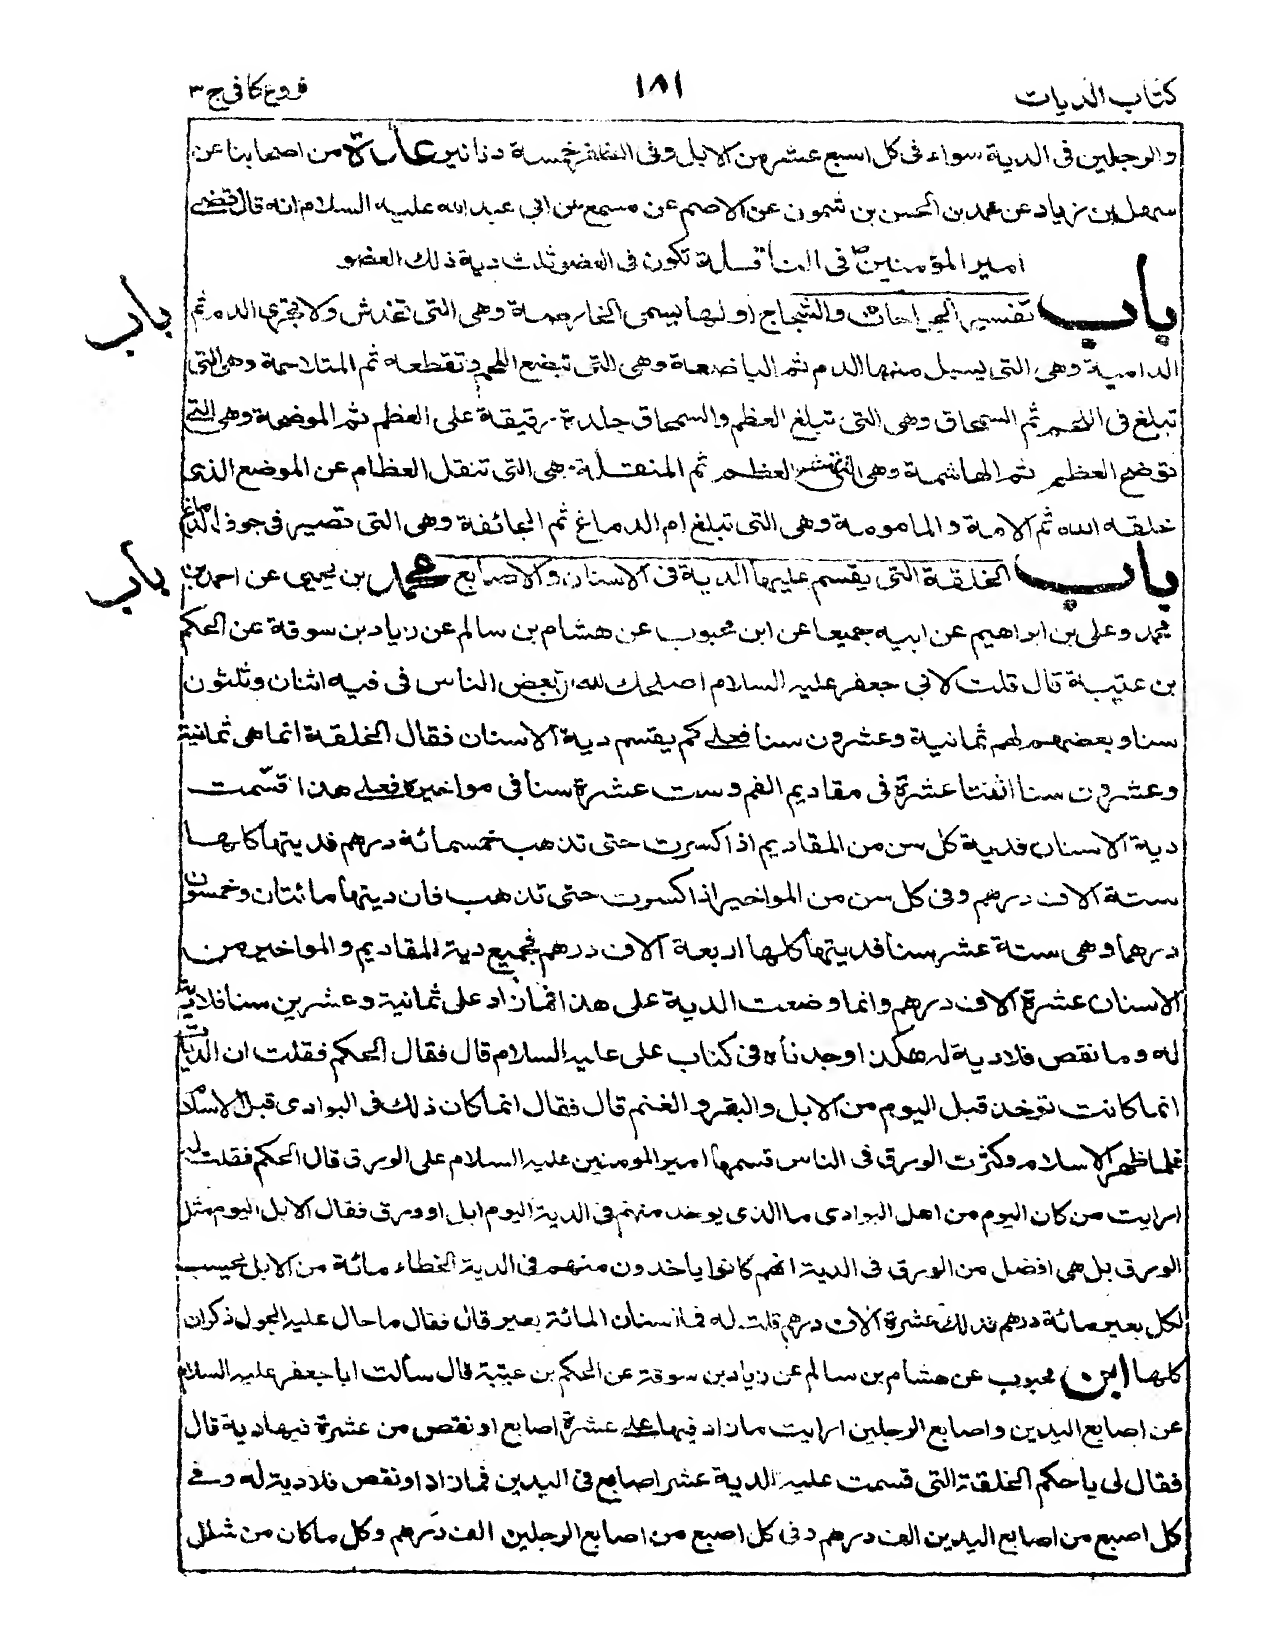 كتاب الديات
١٨١
فروع كافى ج ٣
والرجلين فى الدية سواء فى كل اصبع عشر من الابل وفى الظفر خمسة دنانير عدة من اصحابنا عن
سهل بن زياد عن محمد بن الحسن بن شمون عن الاصم عن مسمع عن ابى عبد الله عليه السلام انه قال قضى
امير المؤمنين ص فى الناقلة تكون فى العضو ثلث دية ذلك العضو
باب تفسير الجراحات والشجاج اولها يسمى الخارصة وهى التى تخدش ولا تجرى الدم ثم
باب
الدامية وهى التى يسيل منها الدم ثم الباضعة وهى التى تبضع اللحم وتقطعه ثم المتلاحمة وهى التى
تبلغ فى اللحم ثم السمحاق وهى التى تبلغ العظم والسمحاق جلدة رقيقة على العظم ثم الموضحة وهى التى
توضح العظم ثم الهاشمة وهى التى تهشم العظم ثم المنقلة وهى التى تنقل العظام عن الموضع الذى
خلقه الله ثم الامة والمامومة وهى التى تبلغ ام الدماغ ثم الجائفة وهى التى تصير فى جوف الدماغ
باب الخلقة التى يقسم عليها الدية فى الاسنان والاصابع محمد بن يحيى عن احمد بن
باب
محمد وعلى بن ابراهيم عن ابيه جميعا عن ابن محبوب عن هشام بن سالم عن زياد بن سوقة عن الحكم
بن عتيبة قال قلت لابى جعفر عليه السلام اصلحك الله ان بعض الناس فى فيه اثنان وثلثون
سنا وبعضهم لهم ثمانية وعشرون سنا فعلى كم يقسم دية الاسنان فقال الخلقة انما هى ثمانية
وعشرون سنا اثنتا عشرة فى مقاديم الفم وست عشرة سنا فى مواخيره فعلى هذا قسّمت
دية الاسنان فدية كل سن من المقاديم اذا كسرت حتى تذهب خمسمائة درهم فديتها كلها
ستة الاف درهم وفى كل سن من المواخير اذا كسرت حتى تذهب فان ديتها مائتان وخمسون
درهما وهى ستة عشر سنا فديتها كلها اربعة الاف درهم فجميع دية المقاديم والمواخير من
الاسنان عشرة الاف درهم وانما وضعت الدية على هذا فما زاد على ثمانية وعشرين سنا فلا دية
له وما نقص فلا دية له هكذا وجدناه فى كتاب على عليه السلام قال فقال الحكم فقلت ان الديات
انما كانت تؤخذ قبل اليوم من الابل والبقر والغنم قال فقال انما كان ذلك فى البوادى قبل الاسلام
فلما ظهر الاسلام وكثرت الورق فى الناس قسمها امير المومنين عليه السلام على الورق قال الحكم فقلت له
ارايت من كان اليوم من اهل البوادى ما الذى يوخذ منهم فى الدية اليوم ابل او ورق فقال الابل اليوم مثل
الورق بل هى افضل من الورق فى الدية انهم كانوا ياخذون منهم فى الدية الخطاء مائة من الابل يحسب
لكل بعير مائة درهم فذلك عشرة الاف درهم قلت له فما اسنان المائة بعير قال فقال ما حال عليه الحول ذكران
كلها ابن محبوب عن هشام بن سالم عن زياد بن سوقة عن الحكم بن عتيبة قال سألت ابا جعفر عليه السلام
عن اصابع اليدين واصابع الرجلين ارايت ما زاد فيها على عشرة اصابع او نقص من عشرة فيها دية قال
فقال لى يا حكم الخلقة التى قسمت عليه الدية عشر اصابع فى اليدين فما زاد او نقص فلا دية له وفى
كل اصبع من اصابع اليدين الف درهم وفى كل اصبع من اصابع الرجلين الف درهم وكل ما كان من شلل